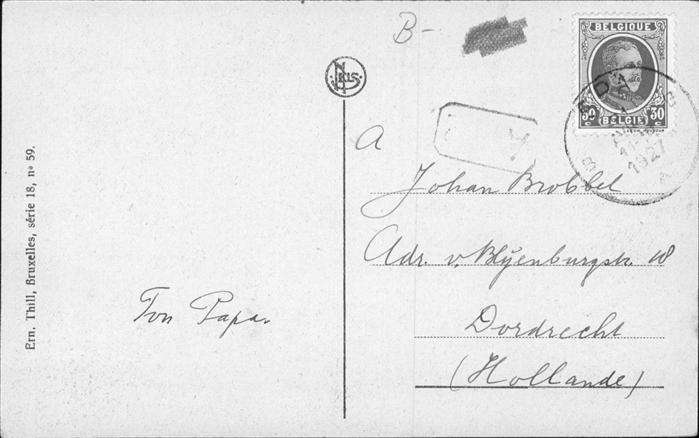 B-
BELGIQUE
30 30
BELGIË
1927
A
Johan Brobbel
Adr. v. Blijenburgstr. 18
Dordrecht
(Hollande)
Ton Papa.
Ern. Thill, Bruxelles, série 18, nº 59.